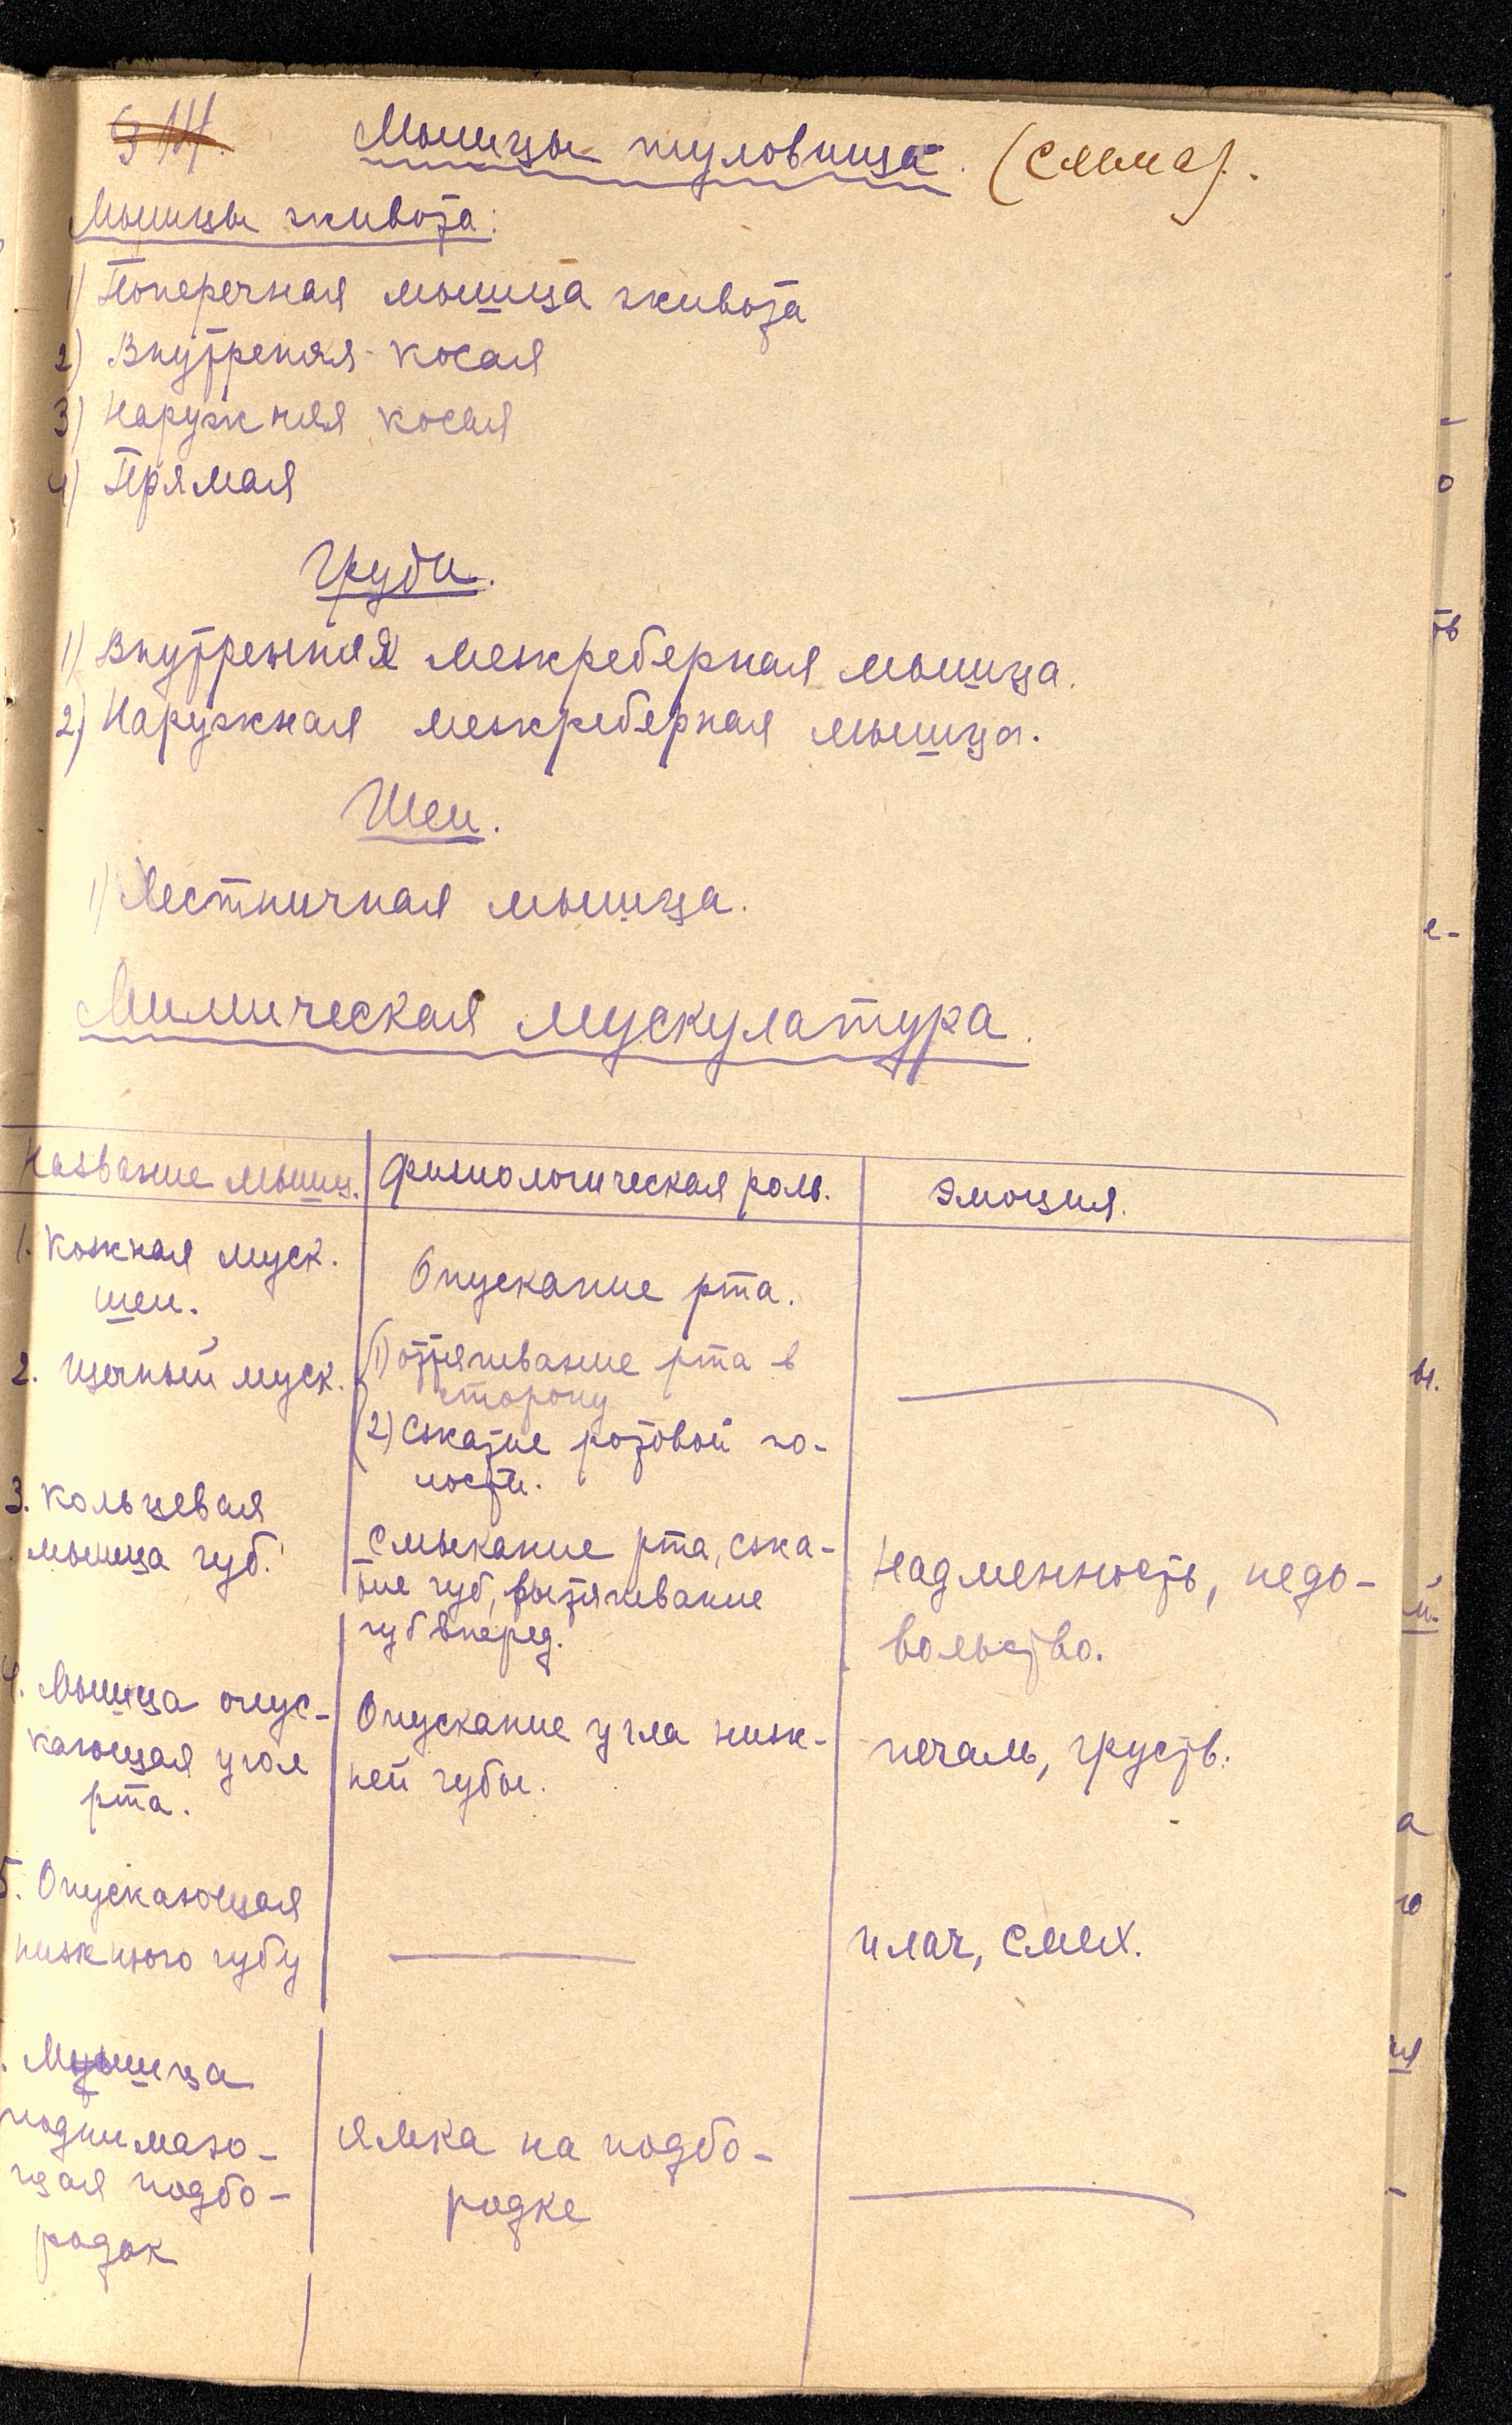 § 14. Мышцы туловища. (схема).
Мышцы живота:
1) Поперечная мышца живота
2) Внутреняя косая
3) Наружняя косая
4) Прямая
Груди.
1) Внутренняя межреберная мышца.
2) Наружная межреберная мышца.
Шеи.
1) Лестничная мышца.
Мимическая мускулатура.
Название мышц. Физиологическая роль. Эмоция.
1. Кожная муск.
шеи.
Опускание рта.
2. Щечный муск.
1) оттягивание рта в
сторону
2) Сжатие ротовой по-
лости.
3. Кольцевая
мышца губ.
Смыкание рта, сжа-
тие губ, вытягивание
губ вперед.
Надменность, недо-
вольство.
4. Мышца опус-
кающая угол
рта.
Опускание угла ниж-
ней губы.
печаль, грусть.
5. Опускающая
нижнюю губу
плач, смех.
Мышца
поднимаю-
щая подбо-
родок
Ямка на подбо-
родке